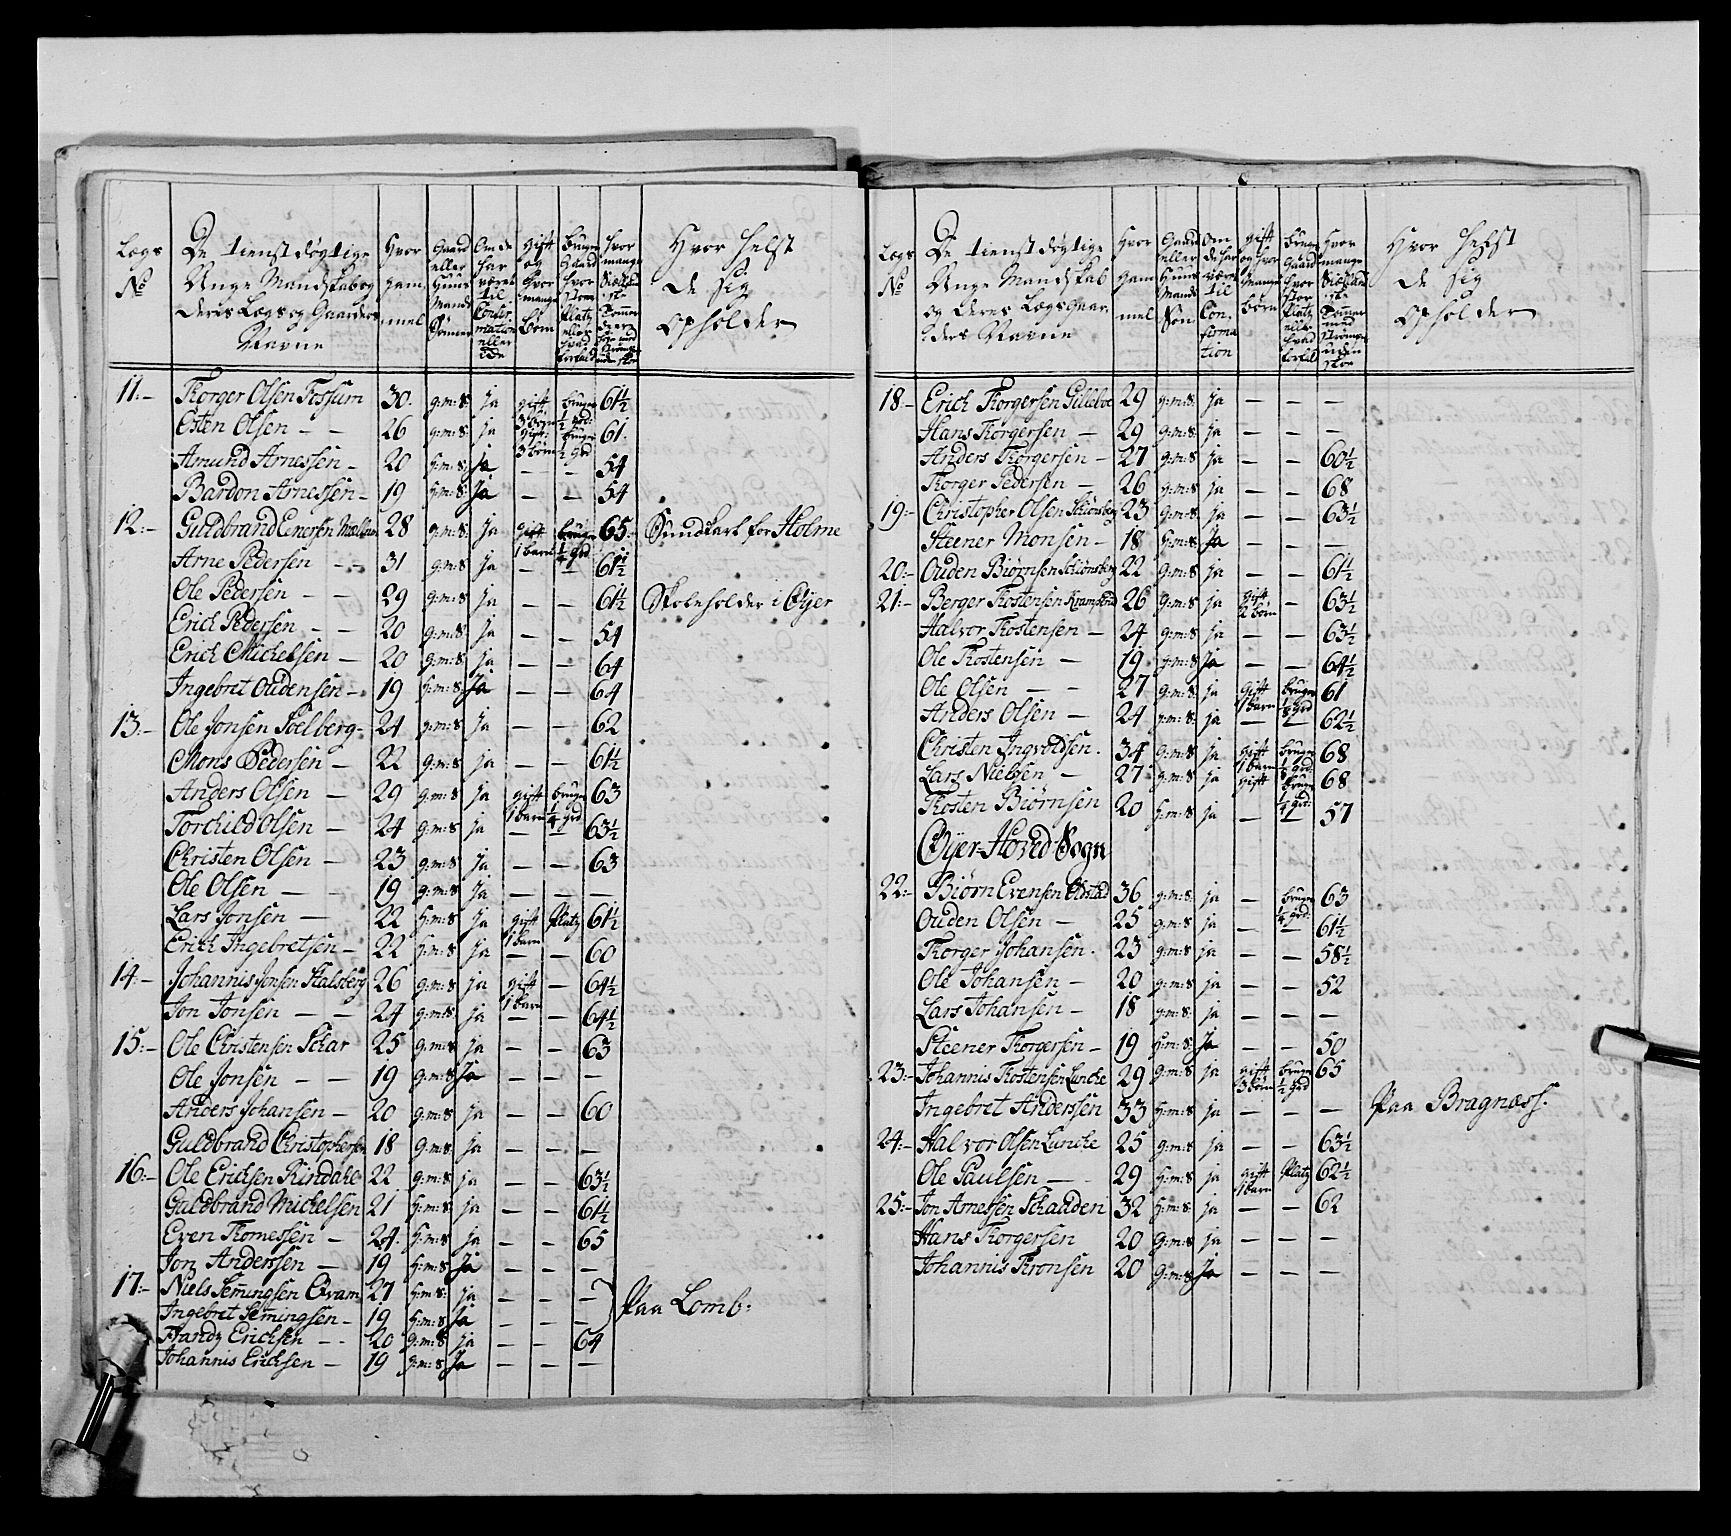 Lægs No
De tienstdygtige Unge Mandskab og deres Lægs og Gaarders Navne
Hvor gammel
Gaard eller Huus Mands Sønner
Om de har været til Confirmation eller Ede
gift og Hvor mange børn
bruger Gaard Hvor stor Platz eller Hvad forfald
Hvor mange
Hvor helst de sig opholder
11:– Torger Olsen Fossum 30 g:m:S: ja gift 3 børn bruger 1/2 grd: 61½
Esten Olsen – – 26 g:m:S: ja gift: 3 børn bruger ½ grd 61
Amund Arnessen – 20 h:m:S: Ja – – 54
Bardon Arnessen – 19 h:m:S: Ja – – 54
12:– Guldbrand Enersen 28 g:m:S: ja gift 1 barn bruger ¼ grd 65 Sundkarl for Holme
Arne Pedersen – – 31 g:m:S ja – – 61½
Ole Pedersen – – 29 g:m:S ja – – 61½ Skoleholder i Øyer
Erich Pedersen – – 20 g:m:S: ja – – 54
Erich Michelsen – 20 g:m:S ja – – 64
Ingebret Oudensen – 19 h:m:S: Ja – – 64
13:– Ole Jonsen Soelberg – 24 g:m:S: ja – – 62
Mons Pedersen – 22 g:m:S: ja – – 61½
Anders Olsen – 29 g:m:S ja gift 1 barn bruger ¼ grd 63
Torchild Olsen – 24 g:m:S ja – – 63½
Christen Olsen – 23 g:m:S ja – – 63
Ole Olsen – – 19 g:m:S Ja – – –
Lars Jonsen – 22 h:m:S ja gift 1 barn Platz 61½
Erich Ingebretsen – 22 h:m:S ja – – 60
14:– Johannis Jonsen Stalsberg 26 g:m:S ja gift 1 barn – 64½
Jon Jonsen – – 24 g:m:S ja – – 64½
15:– Ole Christensen Schar 25 g:m:S ja – – 63
Ole Jonsen – – 19 g:m:S Ja – – –
Anders Johansen – 20 g:m:S ja – – 60
Guldbrand Christophersen 18 g:m:S ja – – –
16:– Ole Erichsen Rindahl 22 g:m:S ja – – 63½
Guldbrand Michelsen 21 h:m:S ja – – 61½
Even Tomessen – 24 h:m:S ja – – 65
Jon Anderssen – 19 h:m:S Ja – – –
17:– Niels Semingsen Qvam 27 h:m:S: ja – – –
Ingebret Semingsen – 19 h:m:S Ja – – – Paa Lomb:
Frandz Erichsen – – 20 g:m:S ja – – 64
Johannis Erichsen – 19 g:m:S Ja – – –
Lægs No
De tienstdygtige Unge Mandskab og deres Lægs Gaarders Navne
Hvor gammel
Gaard eller Huus Mands Søn
Om de har været til Confirmation
gift og hvor mange børn
bruger Gaard Hvor stor Platz eller Hvad forfald
Hvor mange
Hvor helst de sig opholder
18:– Erich Torgersen Gilleboe 29 g:m:S: ja – – –
Hans Torgersen – 29 g:m:S: ja – – –
Anders Torgersen – 27 g:m:S ja – – 60½
Torger Pedersen – 26 g:m:S ja – – 68
19:– Christopher Olsen Schönsberg 23 g:m:S: ja – – 63½
Steener Monsen – 18 h:m:S: Ja – – –
20:– Ouden Biørnsen Schönsberg 22 g:m:S: ja – – 61½
21:– Berger Tostensen 26 g:m:S: ja gift 2 børn – 63½
Halvor Tostensen – 24 g:m:S ja – – 63½
Ole Tostensen – 19 g:m:S Ja – – 64½
Ole Olsen – – 27 g:m:S: ja gift 1 barn bruger 1/8 grd 61
Anders Olsen – 24 g:m:S: ja – – 62½
Christen Ingvoldsen. 34 g:m:S: ja gift 1 barn bruger 1/8 grd 68
Lars Nielsen – 27 g:m:S ja gift bruger ¼ grd: 68
Tosten Biørnsen 20 h:m:S: ja – – 57
Øyer-Hoved Sogn
22:– Biørn Evensen 36 g:m:S: ja – bruger ¼ grd: 63
Ouden Olsen – 25 g:m:S ja – – 61½
Torger Johansen. 23 g:m:S: ja – – 58½
Ole Johansen – 20 g:m:S ja – – 52
Lars Johansen – 18 g:m:S ja – – –
Steener Torgersen – 19 h:m:S: Ja – – 50
23:– Johannis Tostensen Lunche 29 g:m:S ja gift 3 børn bruger ½ grd 65
Ingebret Anderssen 33 h:m:S ja – – – Paa Bragnæss.
24:– Halvor Olsen Lunche 25 g:m:S ja – – 63½
Ole Paulsen – 29 h:m:S ja gift 1 barn Platz 62½
25:– Jon Arnessen Schaliden 32 h:m:S: ja – – 62
Hans Torgersen 20 g:m:S ja – – –
Johannis Tronsen 20 g:m:S Ja – – –